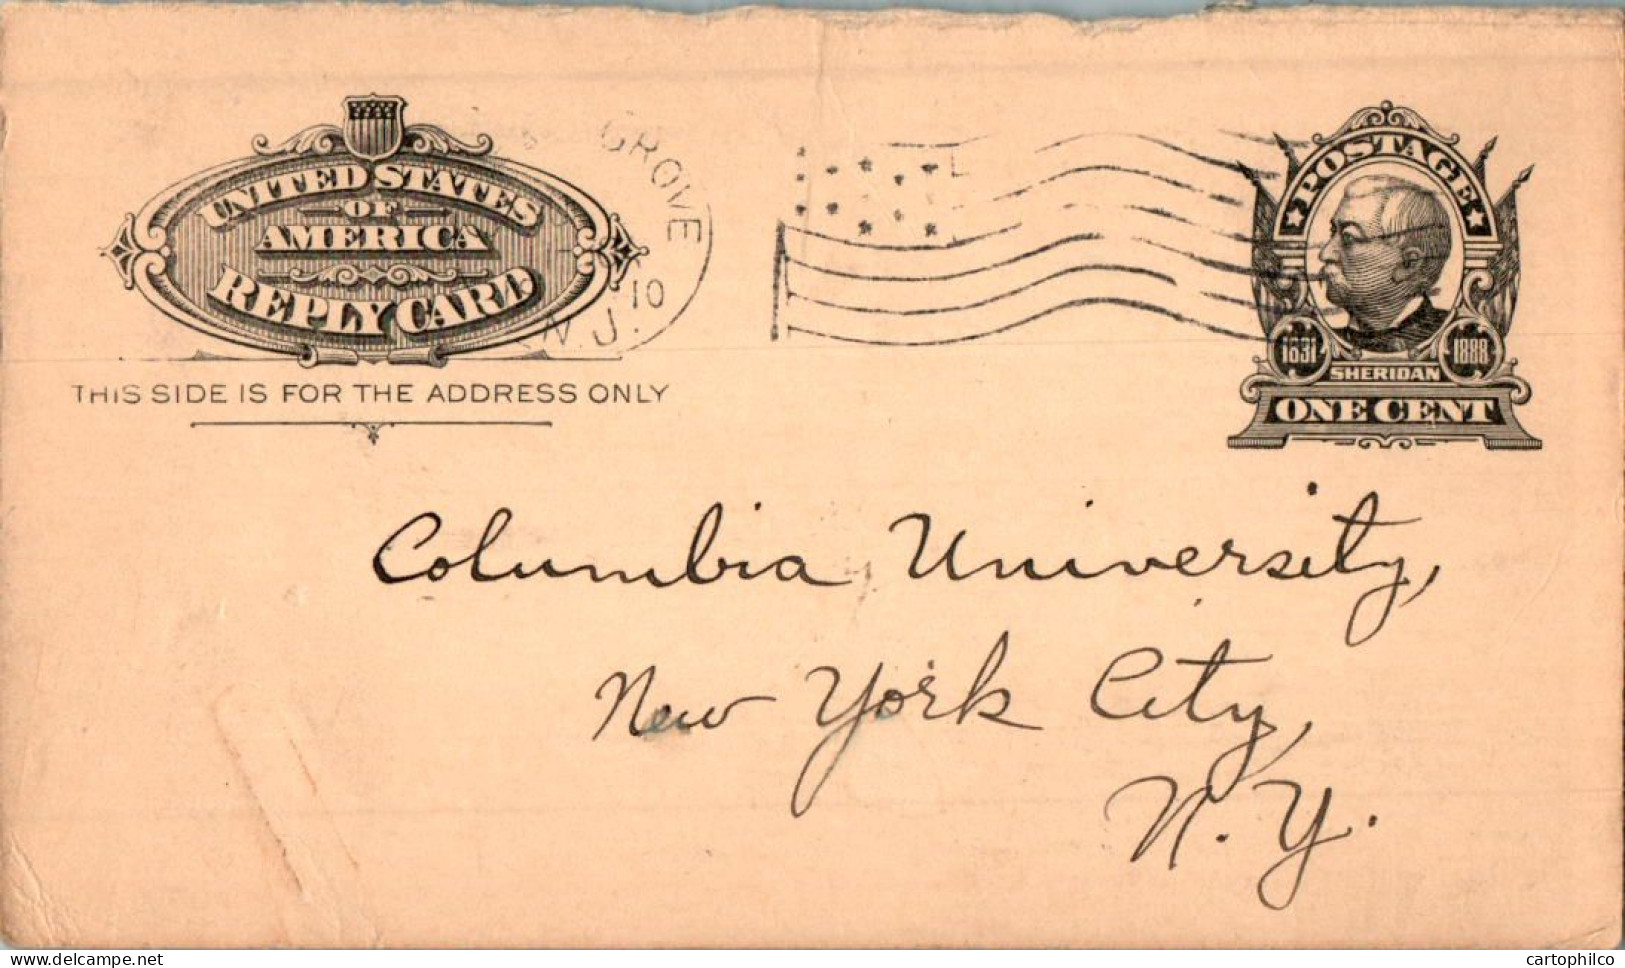 UNITED STATES
OF
AMERICA
REPLY CARD
THIS SIDE IS FOR THE ADDRESS ONLY
GROVE
10
N.J.
POSTAGE
1831 1888
SHERIDAN
ONE CENT
Columbia University,
New York City,
N.Y.
delcampe.net
cartophilco